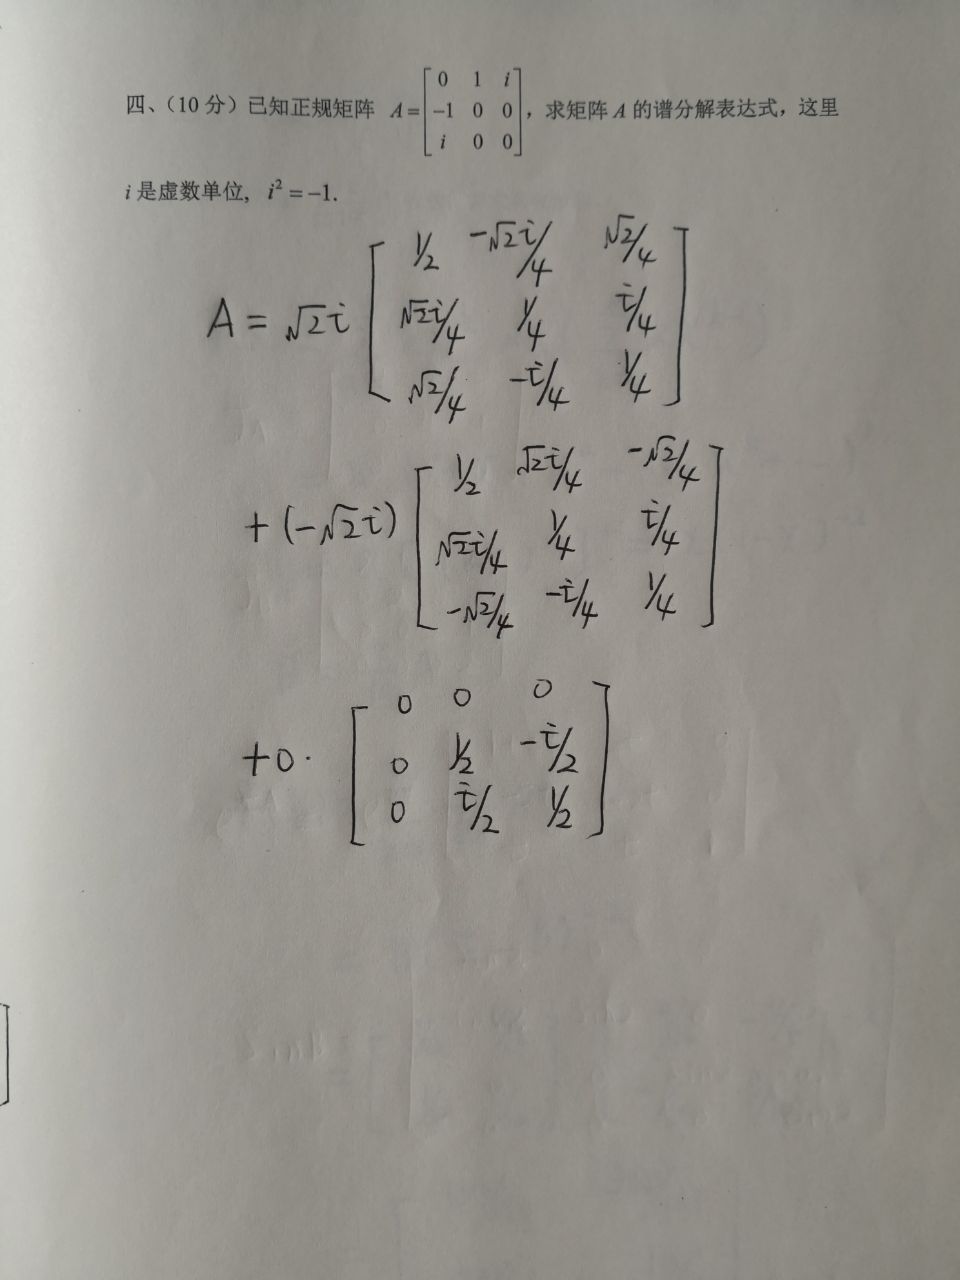 四、(10 分) 已知正规矩阵 A=[0 1 i; -1 0 0; i 0 0], 求矩阵 A 的谱分解表达式, 这里
i 是虚数单位, i²=-1.
A = √2i [1/2 -√2i/4 √2/4; √2i/4 1/4 i/4; √2/4 -i/4 1/4]
+ (-√2i) [1/2 √2i/4 -√2/4; √2i/4 1/4 i/4; -√2/4 -i/4 1/4]
+0· [0 0 0; 0 1/2 -i/2; 0 i/2 1/2]